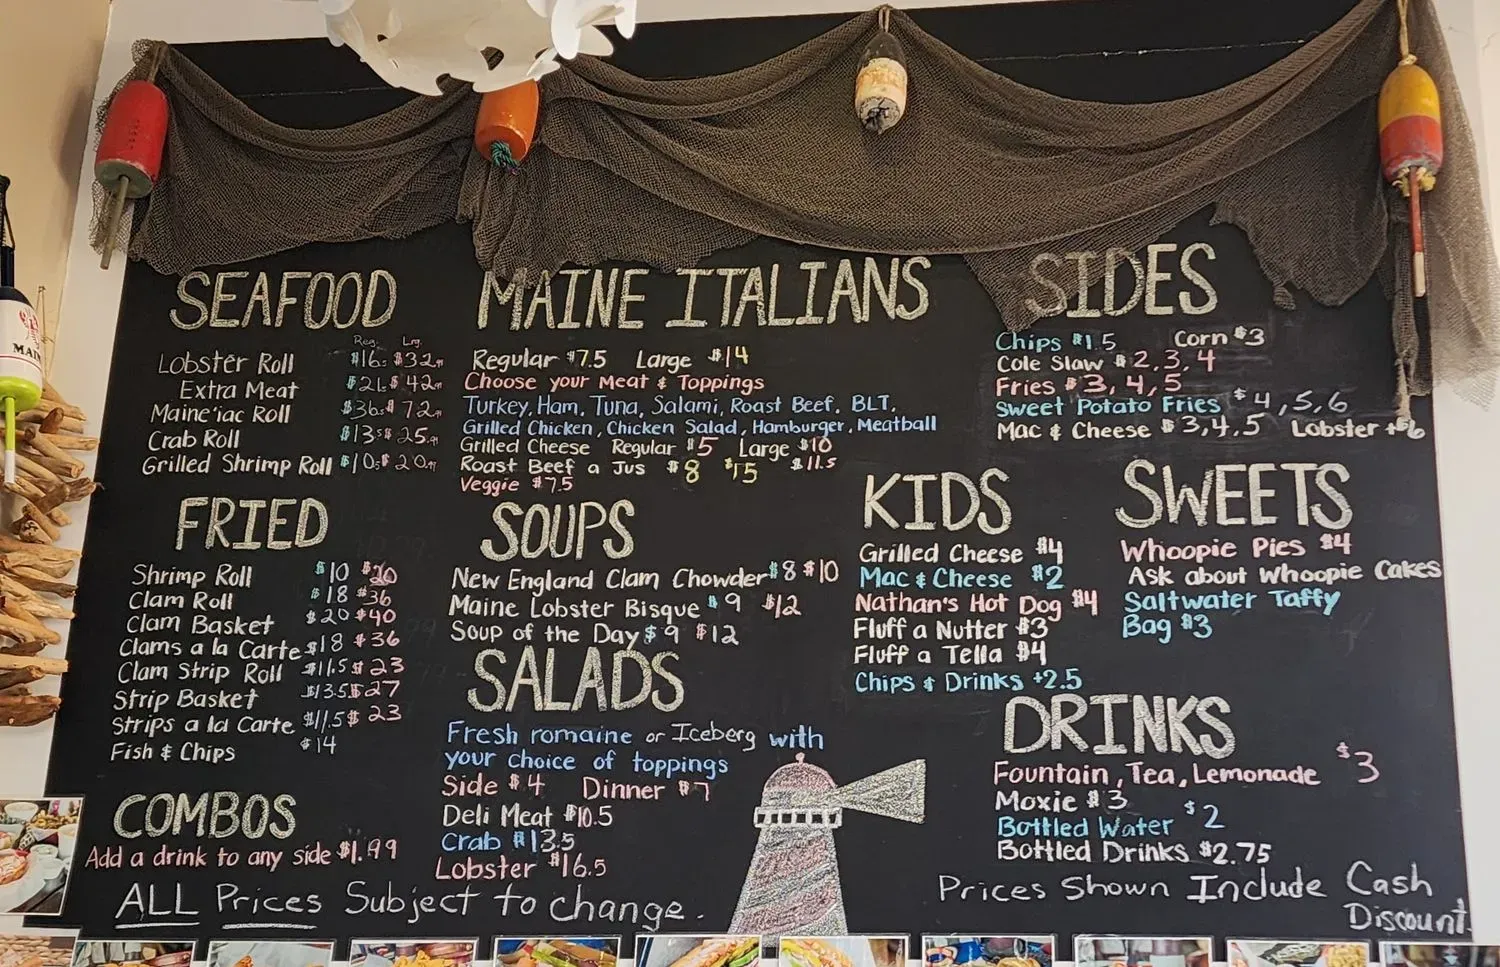 SEAFOOD
Reg. Lrg.
Lobster Roll $16 $32
Extra Meat $21 $42
Maine'iac Roll $36 $72
Crab Roll $13 $25
Grilled Shrimp Roll $10 $20
FRIED
Shrimp Roll $10 $20
Clam Roll $18 $36
Clam Basket $20 $40
Clams a la Carte $18 $36
Clam Strip Roll $11.5 $23
Strip Basket $13.5 $27
Strips a la Carte $11.5 $23
Fish & Chips $14
COMBOS
Add a drink to any side $1.99
ALL Prices Subject to change.
MAINE ITALIANS
Regular $7.5 Large $14
Choose your Meat & Toppings
Turkey, Ham, Tuna, Salami, Roast Beef, BLT,
Grilled Chicken, Chicken Salad, Hamburger, Meatball
Grilled Cheese Regular $5 Large $10
Roast Beef a Jus $8 $15 $11.5
Veggie $7.5
SOUPS
New England Clam Chowder $8 $10
Maine Lobster Bisque $9 $12
Soup of the Day $9 $12
SALADS
Fresh romaine or Iceberg with
your choice of toppings
Side $4 Dinner $7
Deli Meat $10.5
Crab $13.5
Lobster $16.5
SIDES
Chips $1.5 Corn $3
Cole Slaw $2,3,4
Fries $3,4,5
Sweet Potato Fries $4,5,6
Mac & Cheese $3,4,5 Lobster +$6
KIDS
Grilled Cheese $4
Mac & Cheese $2
Nathan's Hot Dog $4
Fluff a Nutter $3
Fluff a Tella $4
Chips & Drinks +2.5
SWEETS
Whoopie Pies $4
Ask about Whoopie Cakes
Saltwater Taffy
Bag $3
DRINKS
Fountain, Tea, Lemonade $3
Moxie $3
Bottled Water $2
Bottled Drinks $2.75
Prices Shown Include Cash
Discount